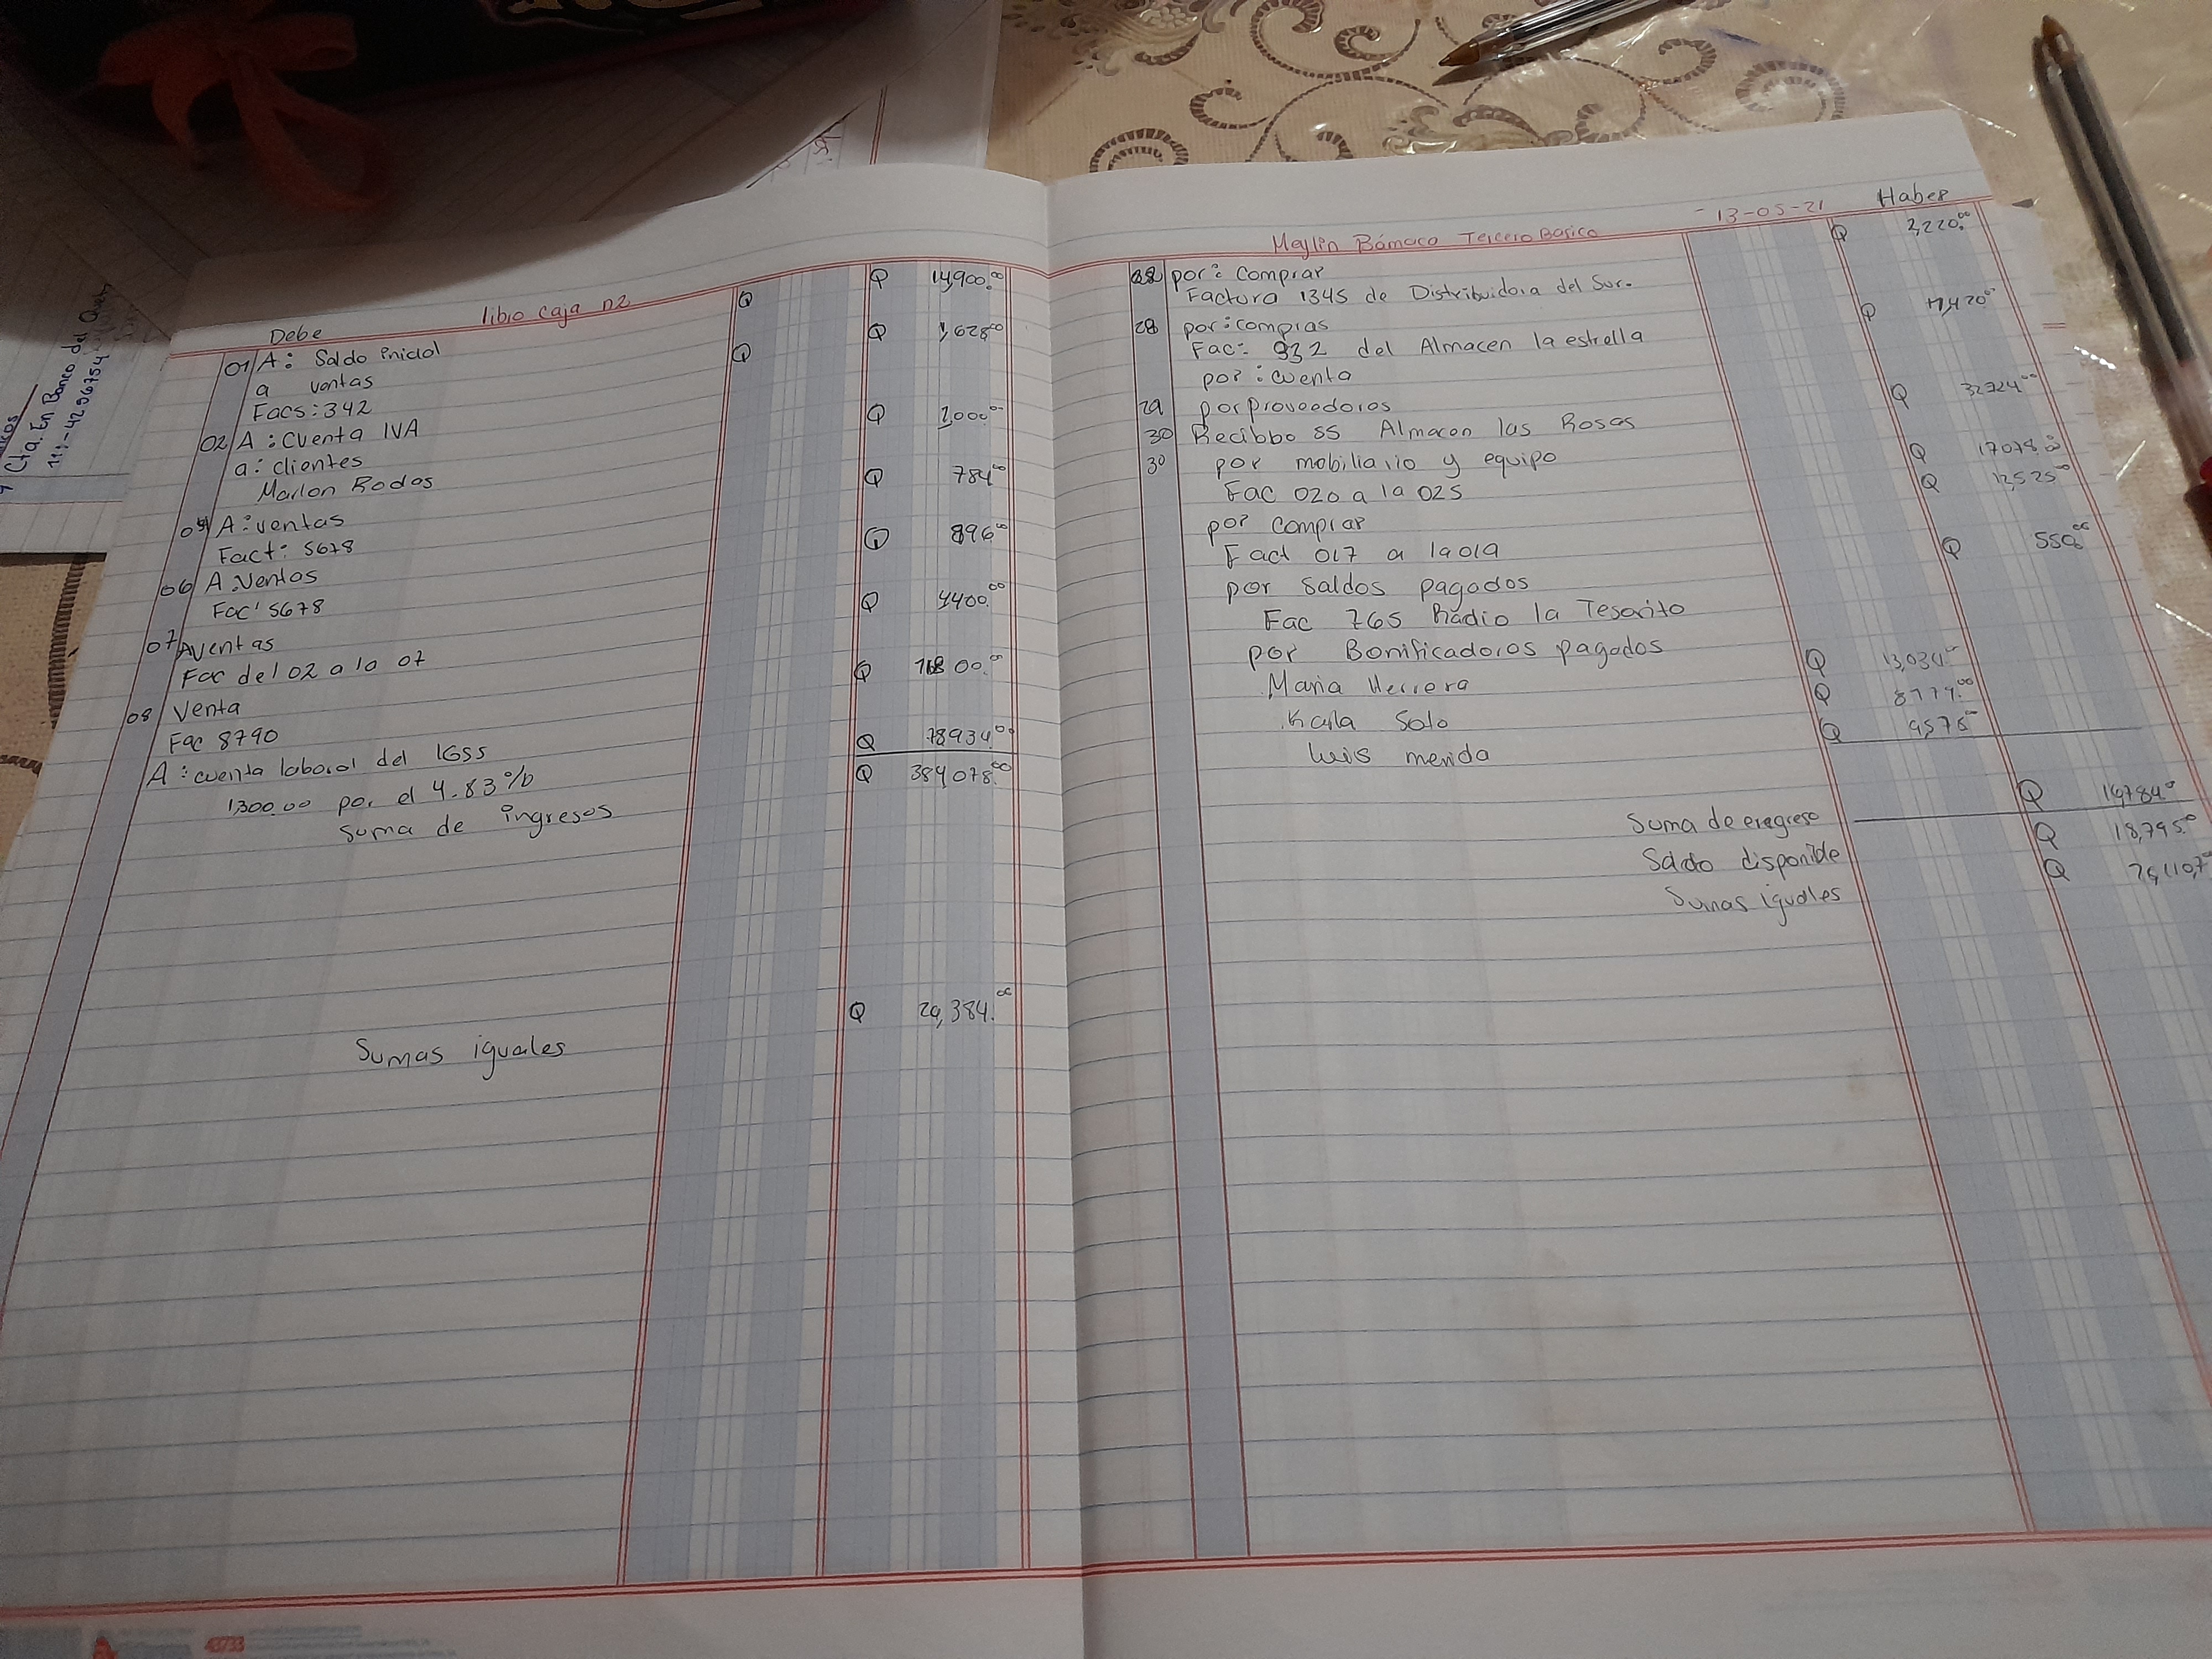 Cta. En Banco del Quetz
111-4296754
Debe
libro caja n2
Q 14,900.00
01 A: Saldo inicial
Q
Q 1,628.00
a ventas
Q
Facs: 342
Q 2,000.00
02 A: Cuenta IVA
a: clientes
Q 784.00
Marlon Rodas
A: ventas
Q 896.00
Fact: 5678
06 A: Ventas
Q 4400.00
Fac: 5678
07 A ventas
Fac del 02 a la 07
08 Venta
Fac 8790
Q 78934.00
A: cuenta laboral del IGSS
Q 384078.00
1,300.00 por el 4.83%
Suma de ingresos
Q 29,384.00
Sumas iguales
13-05-21 Haber
Meylin Bámaca Tercero Basico
Q 3,220.00
28 por: Comprar
Factura 1345 de Distribuidora del Sur.
28 por: compras
Fac: 932 del Almacen la estrella
por: cuenta
Q 32724.00
29 por proveedores
30 Recibbo 55 Almacen las Rosas
Q 17078.00
30 por mobiliario y equipo
Q 12,525.00
Fac 020 a la 025
por comprar
Q 550.00
Fact 017 a la 019
por Saldos pagados
Fac 765 Radio la Tesorito
por Bonificadoros pagados
Q 13,034.00
Maria Herrera
Q 8779.00
Karla Soto
Q 9,576.00
luis merida
Q 16,784.00
Suma de eregreso
Q 18,795.00
Saldo disponible
Sumas iguales
43733